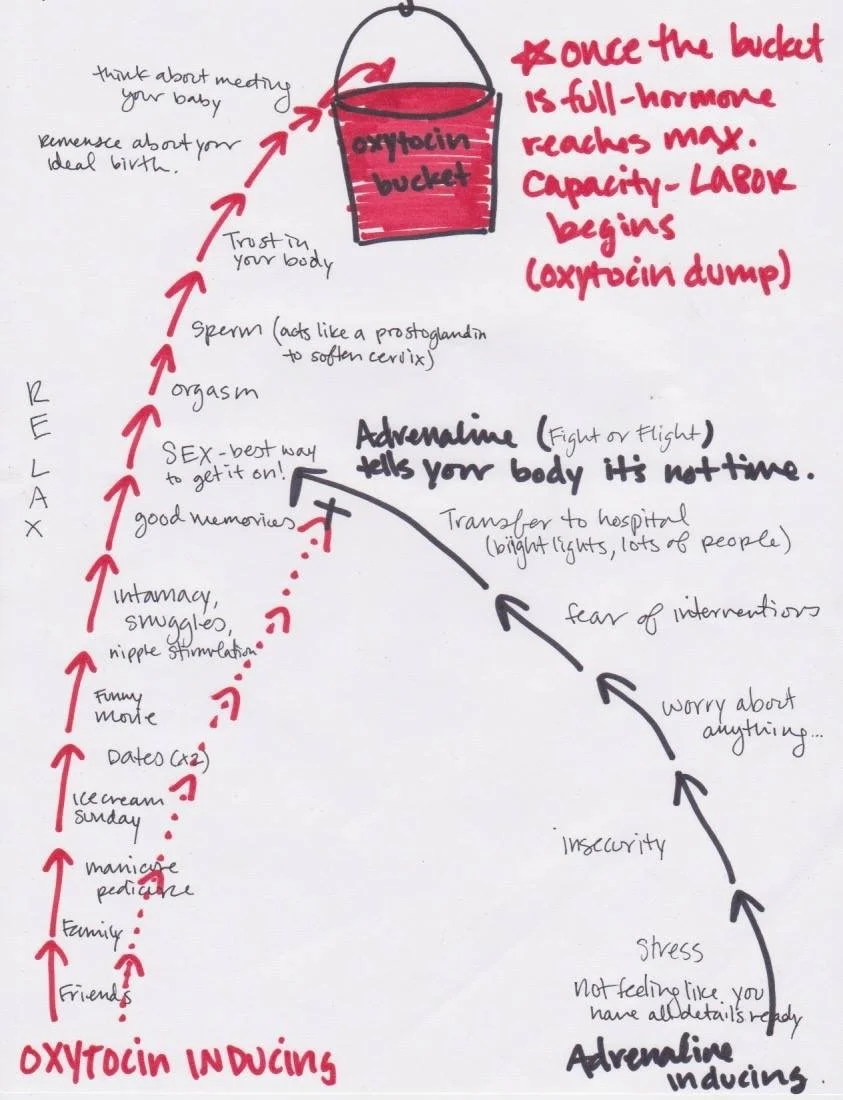 think about meeting
your baby
remenisce about your
ideal birth.
oxytocin
bucket
☆ once the bucket
is full-hormone
reaches max.
capacity- LABOR
begins
(oxytocin dump)
Trust in
your body
Sperm (acts like a prostoglandin
to soften cervix)
orgasm
SEX-best way
to get it on!
good memories
RELAX
Intamacy,
snuggles,
nipple stimulation
Funny
movie
Dates (x2)
ice cream
sunday
manicure
pedicure
Family
Friends
OXYTOCIN INDUCING
Adrenaline (Fight or Flight)
tells your body it's not time.
Transfer to hospital
(bright lights, lots of people)
fear of interventions
worry about
anything...
insecurity
Stress
Not feeling like you
have all details ready
Adrenaline
inducing